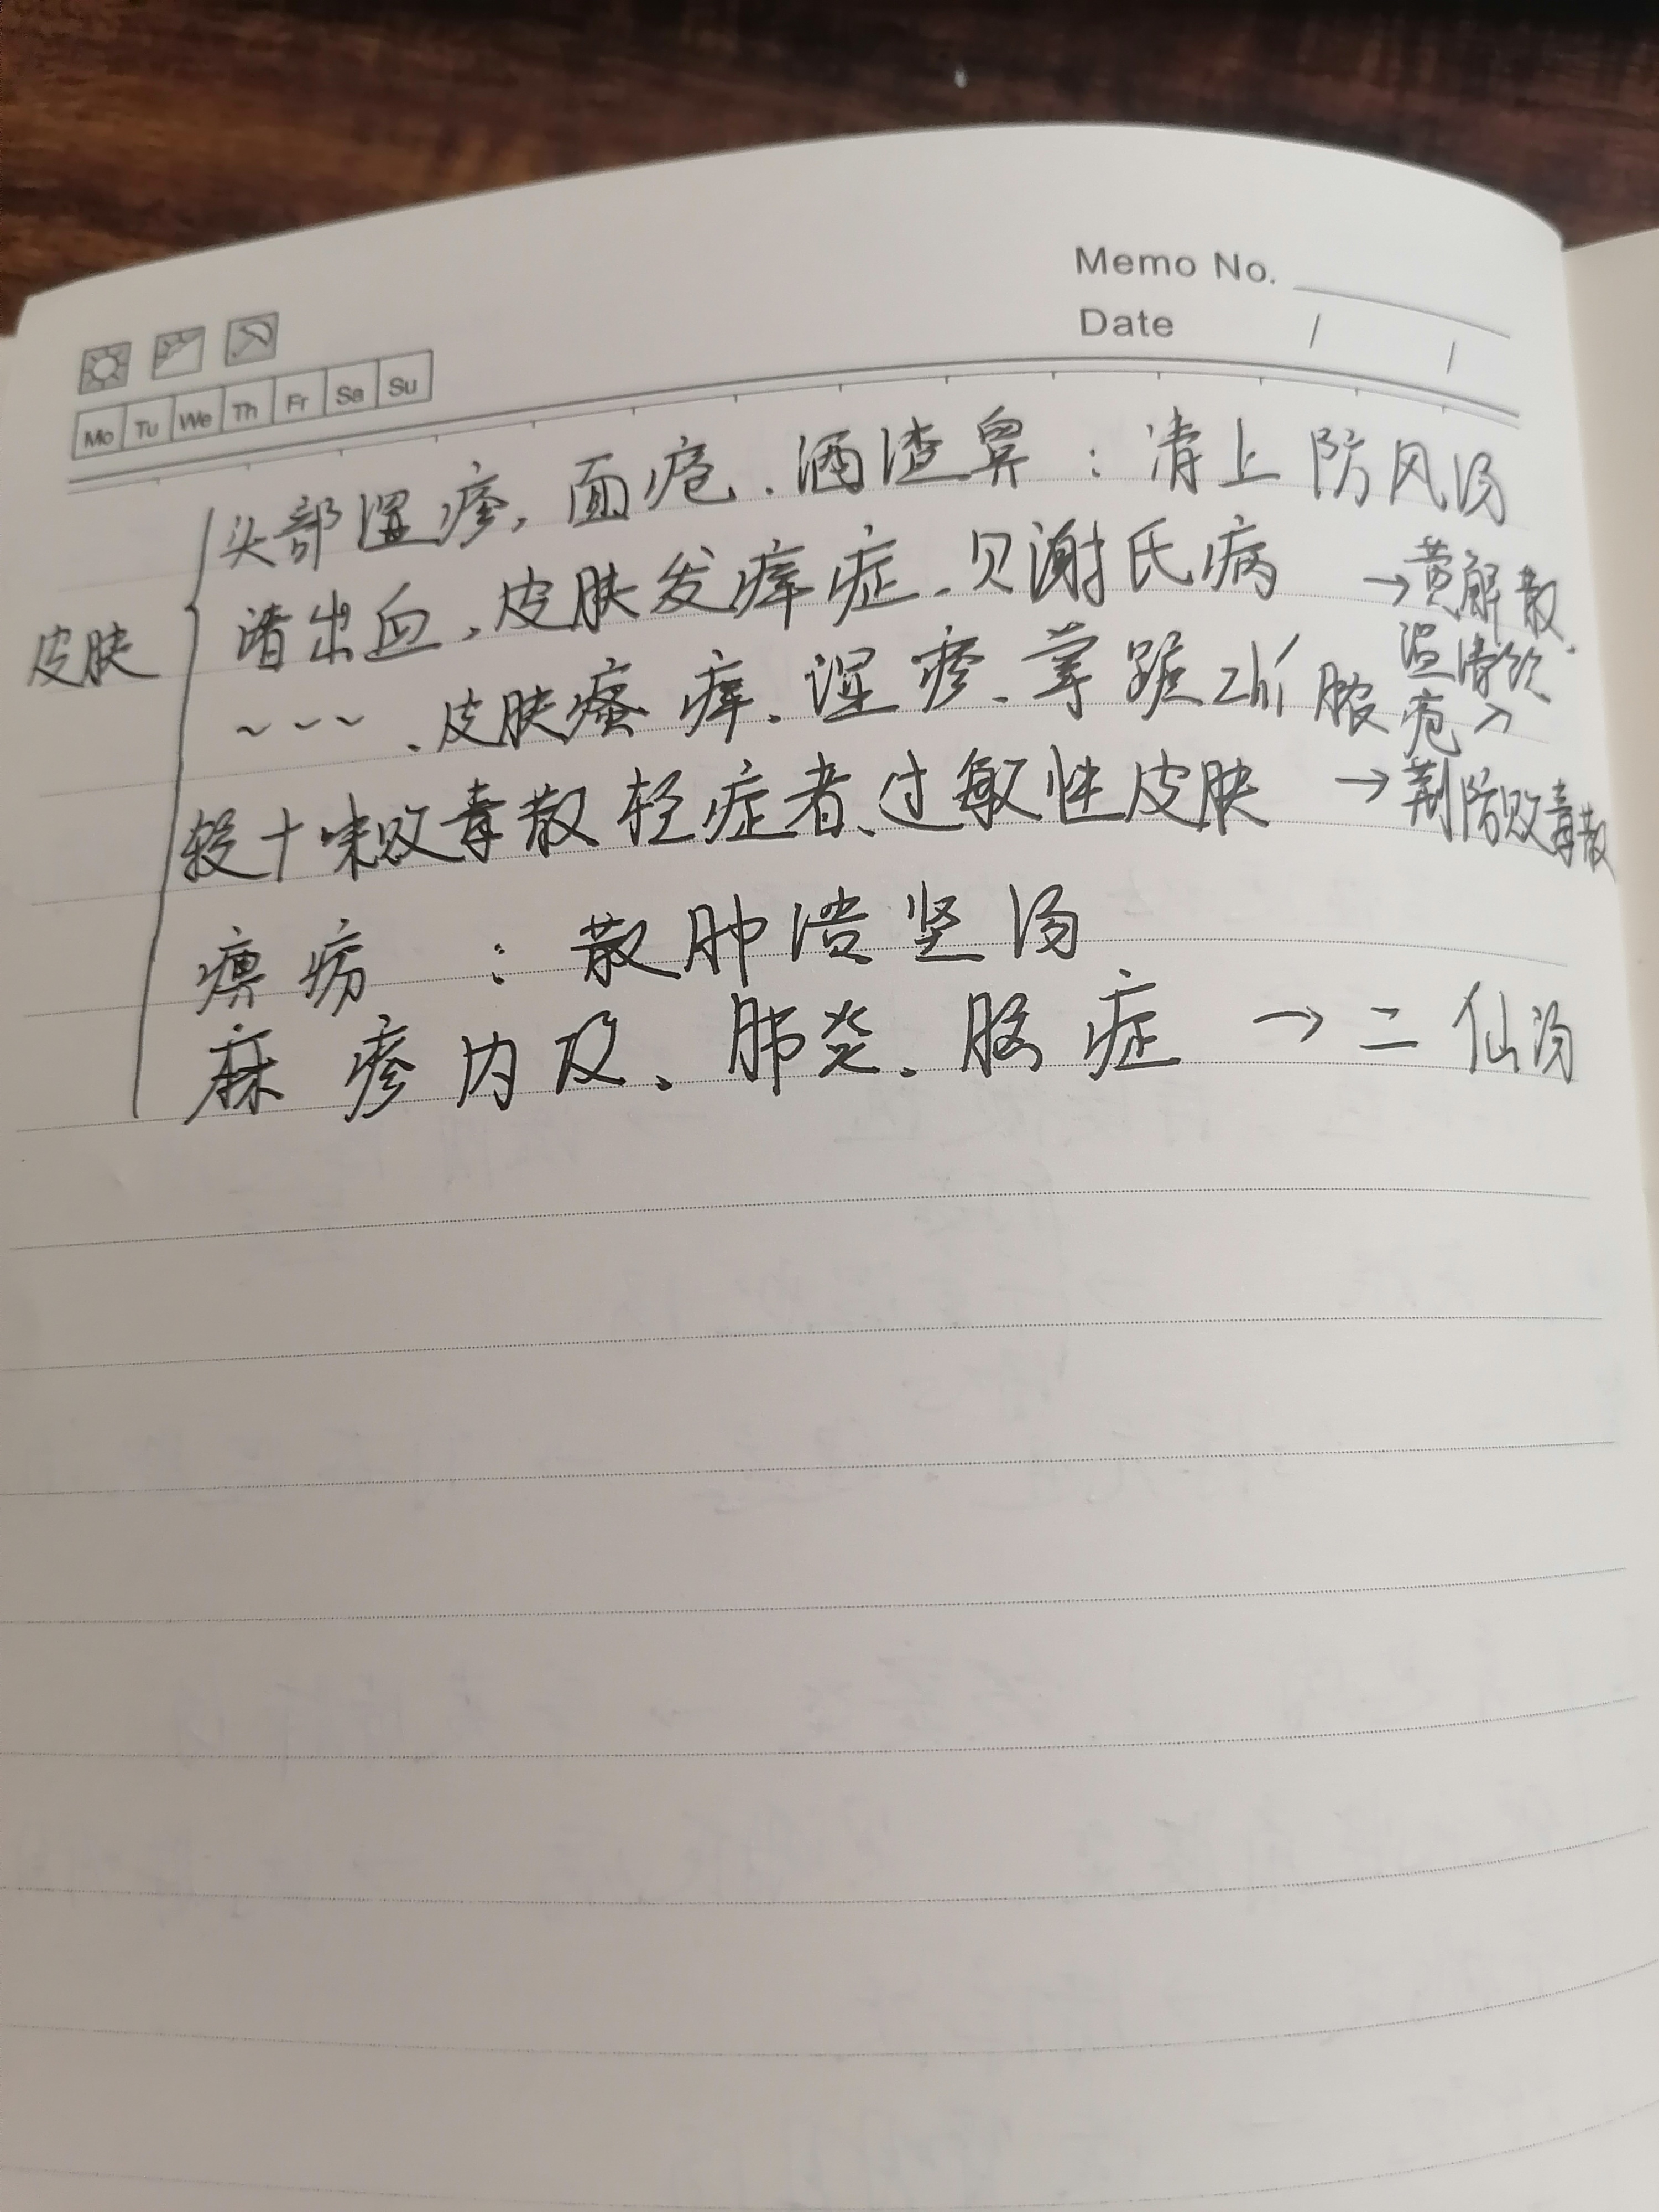 Memo No.
Date / /
Mo Tu We Th Fr Sa Su
头部湿疹,面疱.酒渣鼻:清上防风汤
皮肤
诸出血,皮肤发痒症.贝谢氏病 →黄解散.
~ - - ~、皮肤瘙痒、湿疹、掌跖zhí脓疱→
温清饮
较十味败毒散轻症者、过敏性皮肤 →荆防败毒散
瘰疬 :散肿溃坚汤
麻疹内及、肺炎、脑症 →二仙汤